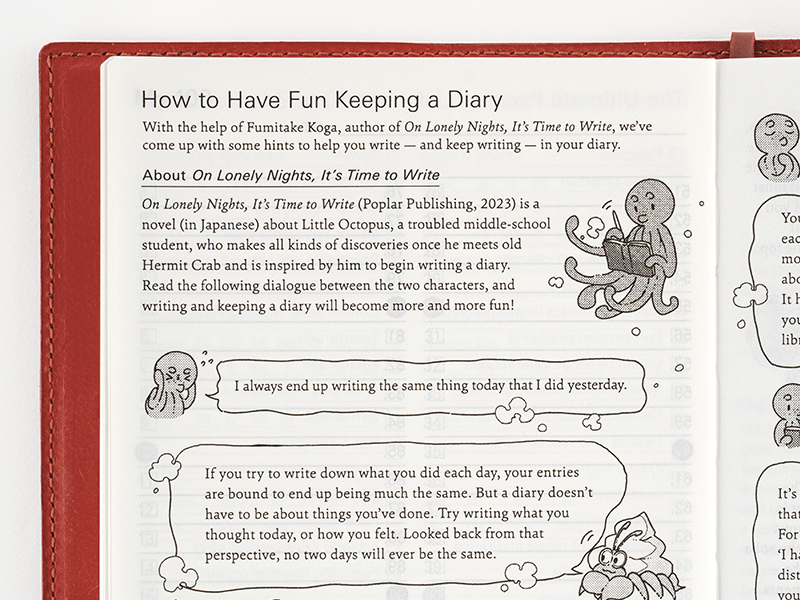 How to Have Fun Keeping a Diary
With the help of Fumitake Koga, author of On Lonely Nights, It's Time to Write, we've
come up with some hints to help you write — and keep writing — in your diary.
About On Lonely Nights, It's Time to Write
On Lonely Nights, It's Time to Write (Poplar Publishing, 2023) is a
novel (in Japanese) about Little Octopus, a troubled middle-school
student, who makes all kinds of discoveries once he meets old
Hermit Crab and is inspired by him to begin writing a diary.
Read the following dialogue between the two characters, and
writing and keeping a diary will become more and more fun!
I always end up writing the same thing today that I did yesterday.
If you try to write down what you did each day, your entries
are bound to end up being much the same. But a diary doesn't
have to be about things you've done. Try writing what you
thought today, or how you felt. Looked back from that
perspective, no two days will ever be the same.
It's
that
For